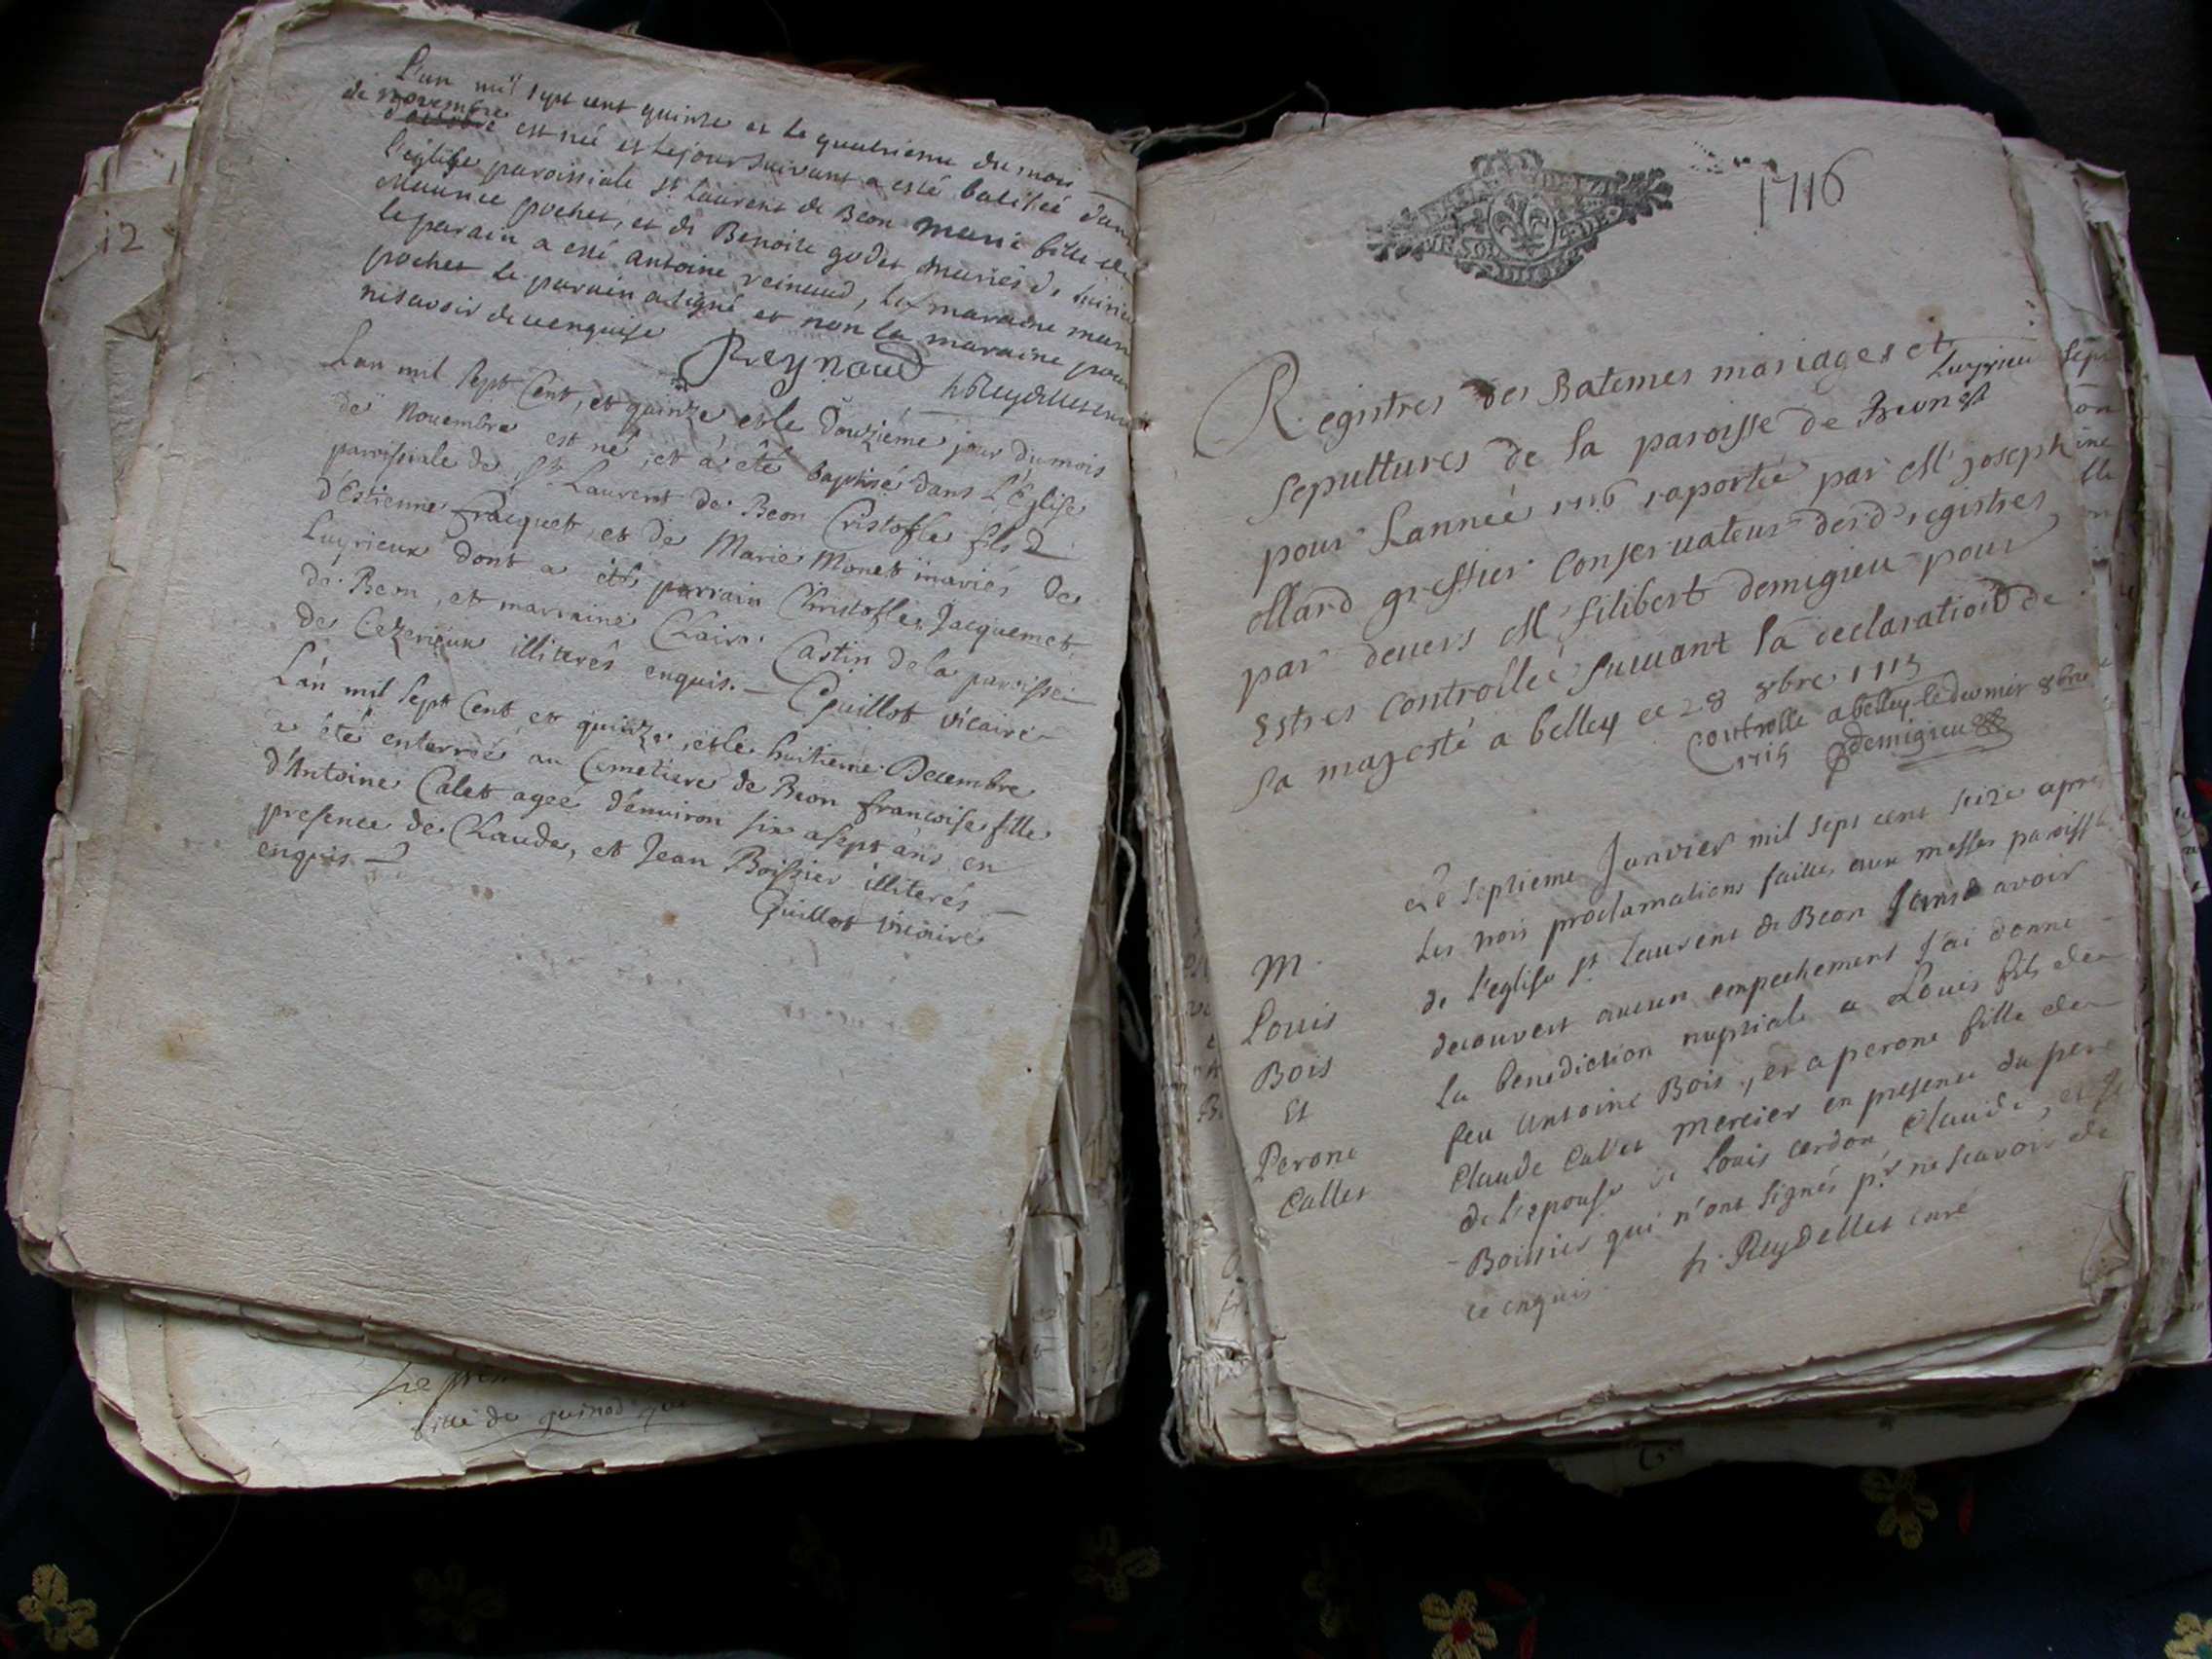 L'an mil sept cent quinze et le quatrieme du mois
de novembre
d'octobre est né et le jour suivant a esté batisée dans
l'eglise paroissiale St Laurent de Beon marie fille de
Maurice pochet, et de Benoite godet mariés de
le parain a esté antoine reinaud, la maraine
pochet le parain a signé et non la maraine pour
ni savoir de ce enquise
Reynaud
h Reydellet curé
L'an mil sept Cent, et quinze et le douzième jour du mois
de Novembre est né, et a été baptisé dans L'Eglise
paroissiale de St Laurent de Beon Cristofle fils
d'Estienne Fracquet, et de Marie Monet mariés de
Luyrieux dont a été parrain Christofle Jacquemet
de Beon, et marraine Claire Castin de la paroisse
de Cezerieux illiterés enquis. — Guillot vicaire
L'an mil sept Cent et quinze, et le huitieme Decembre
a été enterrée au Cemetiere de Beon francoise fille
d'Antoine Calet agée d'environ six a sept ans en
presence de Claude, et Jean Boissier illiterés
enquis —
Guillot vicaire
12
fille de
1716
Registres des Batemes mariages et
sepultures de la paroisse de Beon et Luyrieu
pour Lannée 1716 raportée par Mr joseph
Mard greffier Conservateur desd registres
par devers Mr filibert demigieu pour
Estres Controllée suivant la declaration de
sa majesté a belley ce 28 8bre 1715
Controlle a belley le dernier 8bre
1715 Demigieu
Le septieme Janvier mil sept cent seize apres
les trois proclamations faites aux messes paroissles
de l'eglise St Laurent de Beon sans avoir
decouvert aucun empechement j'ai donné
la benediction nuptiale a Louis fils de
feu Antoine Bois, et a perone fille de
Claude Callet mercier en presence du pere
de l'epouse de Louis cerdon Claude, et
Boissier qui n'ont signés pr ne scavoir de
ce enquis h. Reydellet curé
M.
Louis
Bois
Et
Perone
Callet